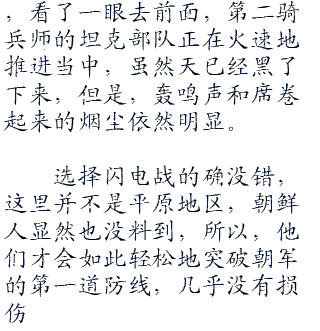 ，看了一眼去前面，第二骑
兵师的坦克部队正在火速地
推进当中，虽然天已经黑了
下来，但是，轰鸣声和席卷
起来的烟尘依然明显。
选择闪电战的确没错，
这里并不是平原地区，朝鲜
人显然也没料到，所以，他
们才会如此轻松地突破朝军
的第一道防线，几乎没有损
伤